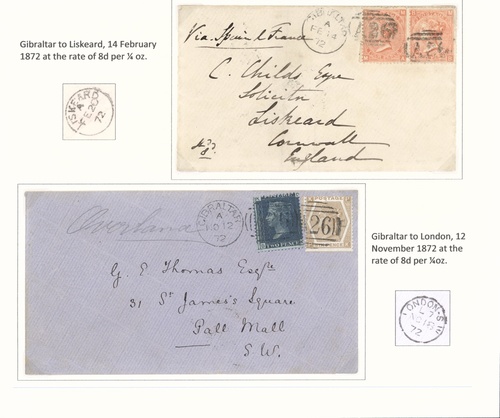 Gibraltar to Liskeard, 14 February
1872 at the rate of 8d per ¼ oz.
LISKEARD
A
FE 20
72
Via Spain & France
GIBRALTAR
A
FE 14
72
C. Childs Esqre
Solicitor
Liskeard
Cornwall
England
Overland
GIBRALTAR
A
NO 12
72
TWO PENCE
A26
G. E Thomas Esqre
31 St James's Square
Pall Mall
S.W.
Gibraltar to London, 12
November 1872 at the
rate of 8d per ¼oz.
LONDON-S.W
72